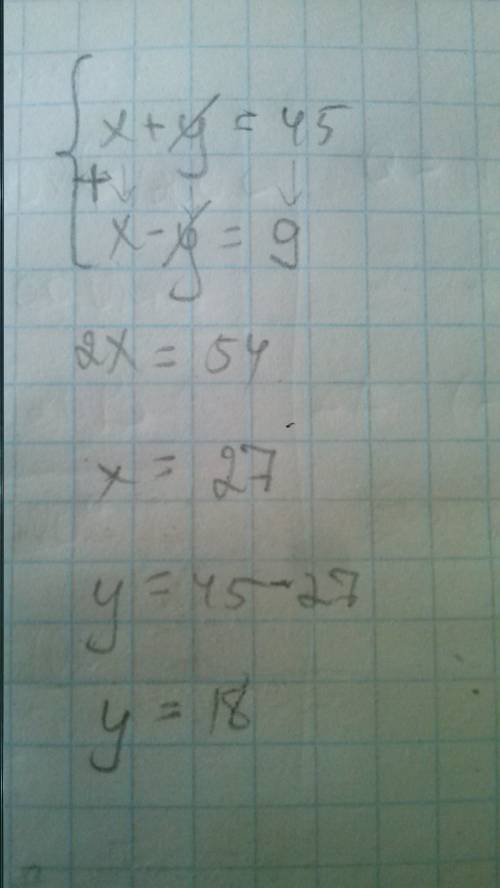 x + y = 45
+
x - y = 9
2x = 54
x = 27
y = 45 - 27
y = 18